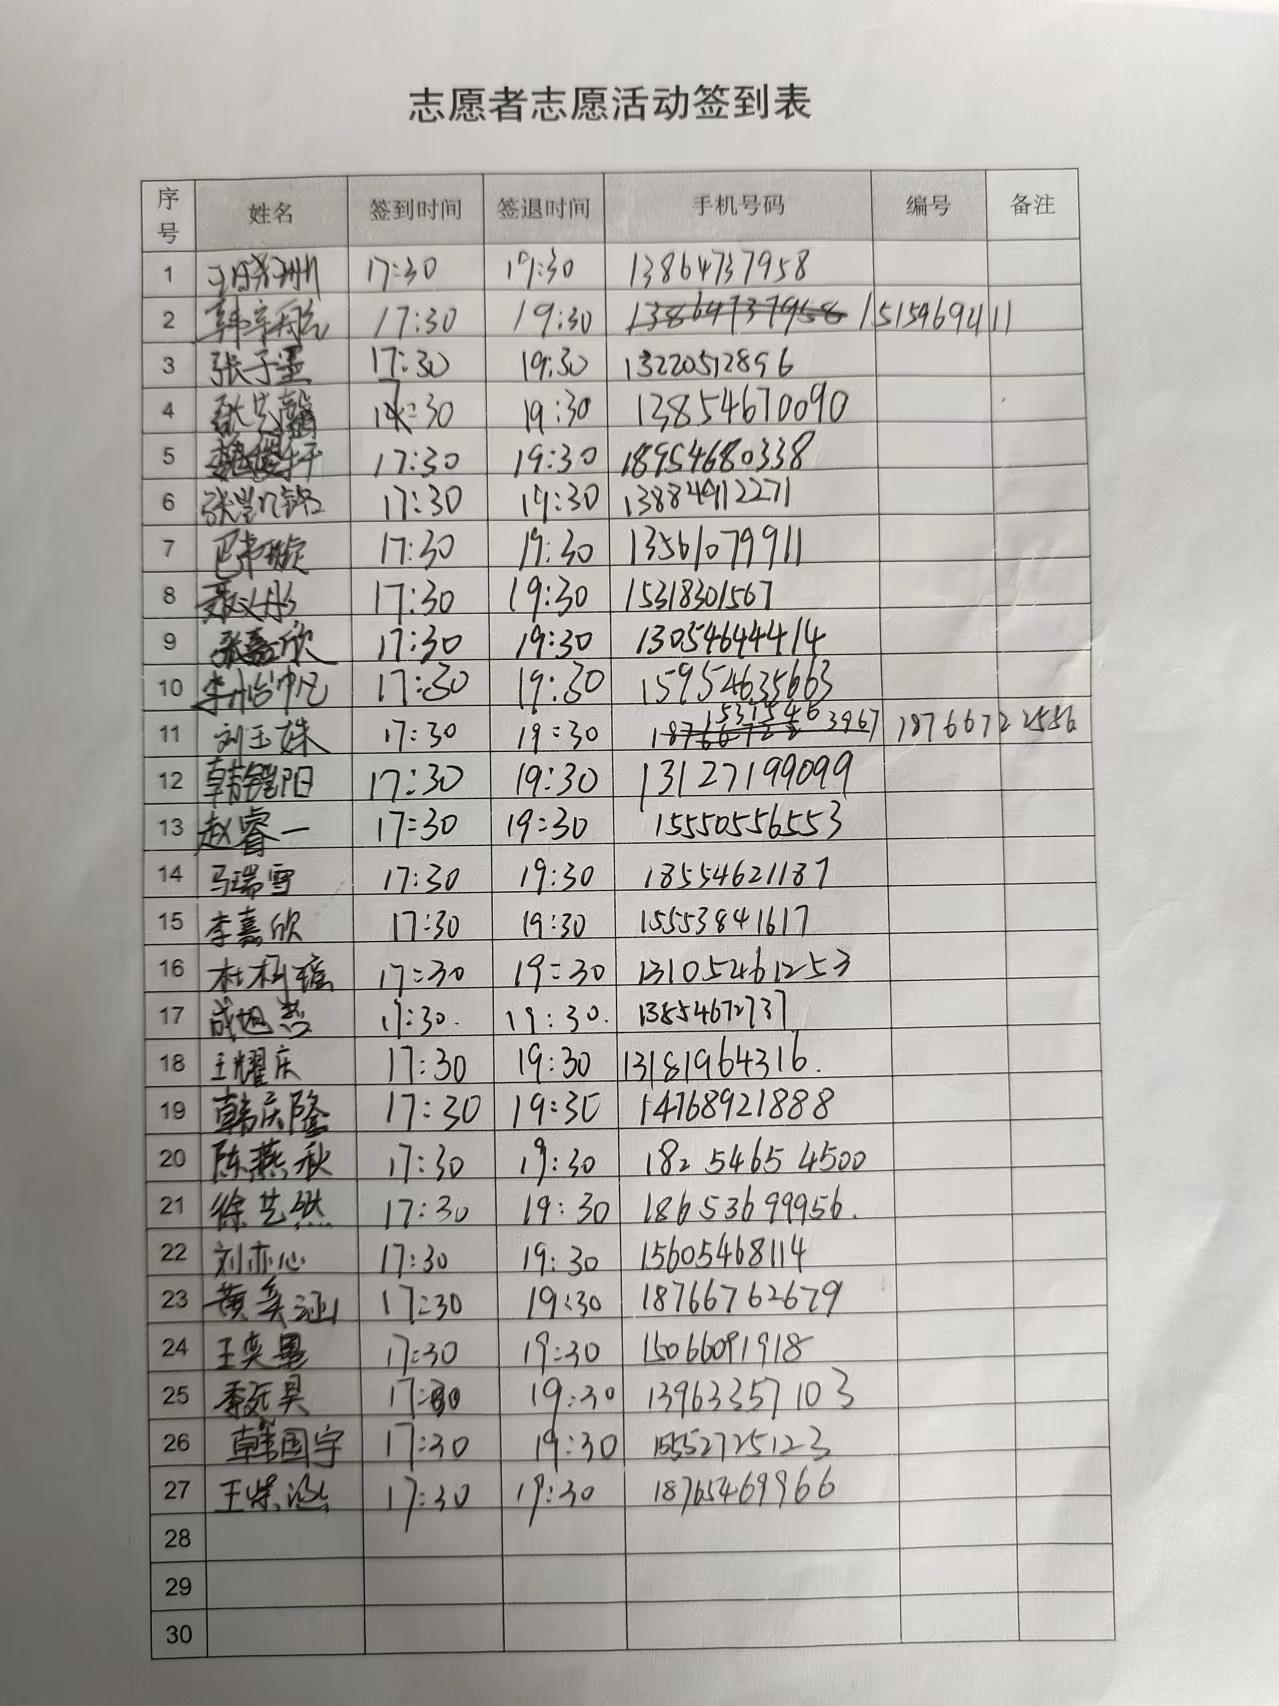 志愿者志愿活动签到表
序号 姓名 签到时间 签退时间 手机号码 编号 备注
1 17:30 19:30 13864737958
2 17:30 19:30 13864737958 15154694111
3 张子墨 17:30 19:30 13220512896
4 17:30 19:30 13854670090
5 17:30 19:30 18954680338
6 张凯锦 17:30 19:30 13884912271
7 17:30 19:30 13561079911
8 17:30 19:30 15318301567
9 张嘉欣 17:30 19:30 13054644414
10 17:30 19:30 15954635663
11 刘玉姝 17:30 19:30 3967 18766722556
12 韩铠阳 17:30 19:30 13127199099
13 赵睿一 17:30 19:30 15550556553
14 马瑞雪 17:30 19:30 18554621187
15 李嘉欣 17:30 19:30 15553841617
16 17:30 19:30 13105461253
17 成旭哲 17:30. 19:30. 13854672737
18 王耀庆 17:30 19:30 13181964316.
19 韩庆隆 17:30 19:30 14768921888
20 陈燕秋 17:30 19:30 182 5465 4500
21 徐艺然 17:30 19:30 18653699956.
22 刘亦心 17:30 19:30 15605468114
23 17:30 19:30 18766762679
24 王奕墨 17:30 19:30 15066091918
25 17:30 19:30 13963357103
26 韩国宇 17:30 19:30 15552725123
27 17:30 19:30 18765469966
28
29
30